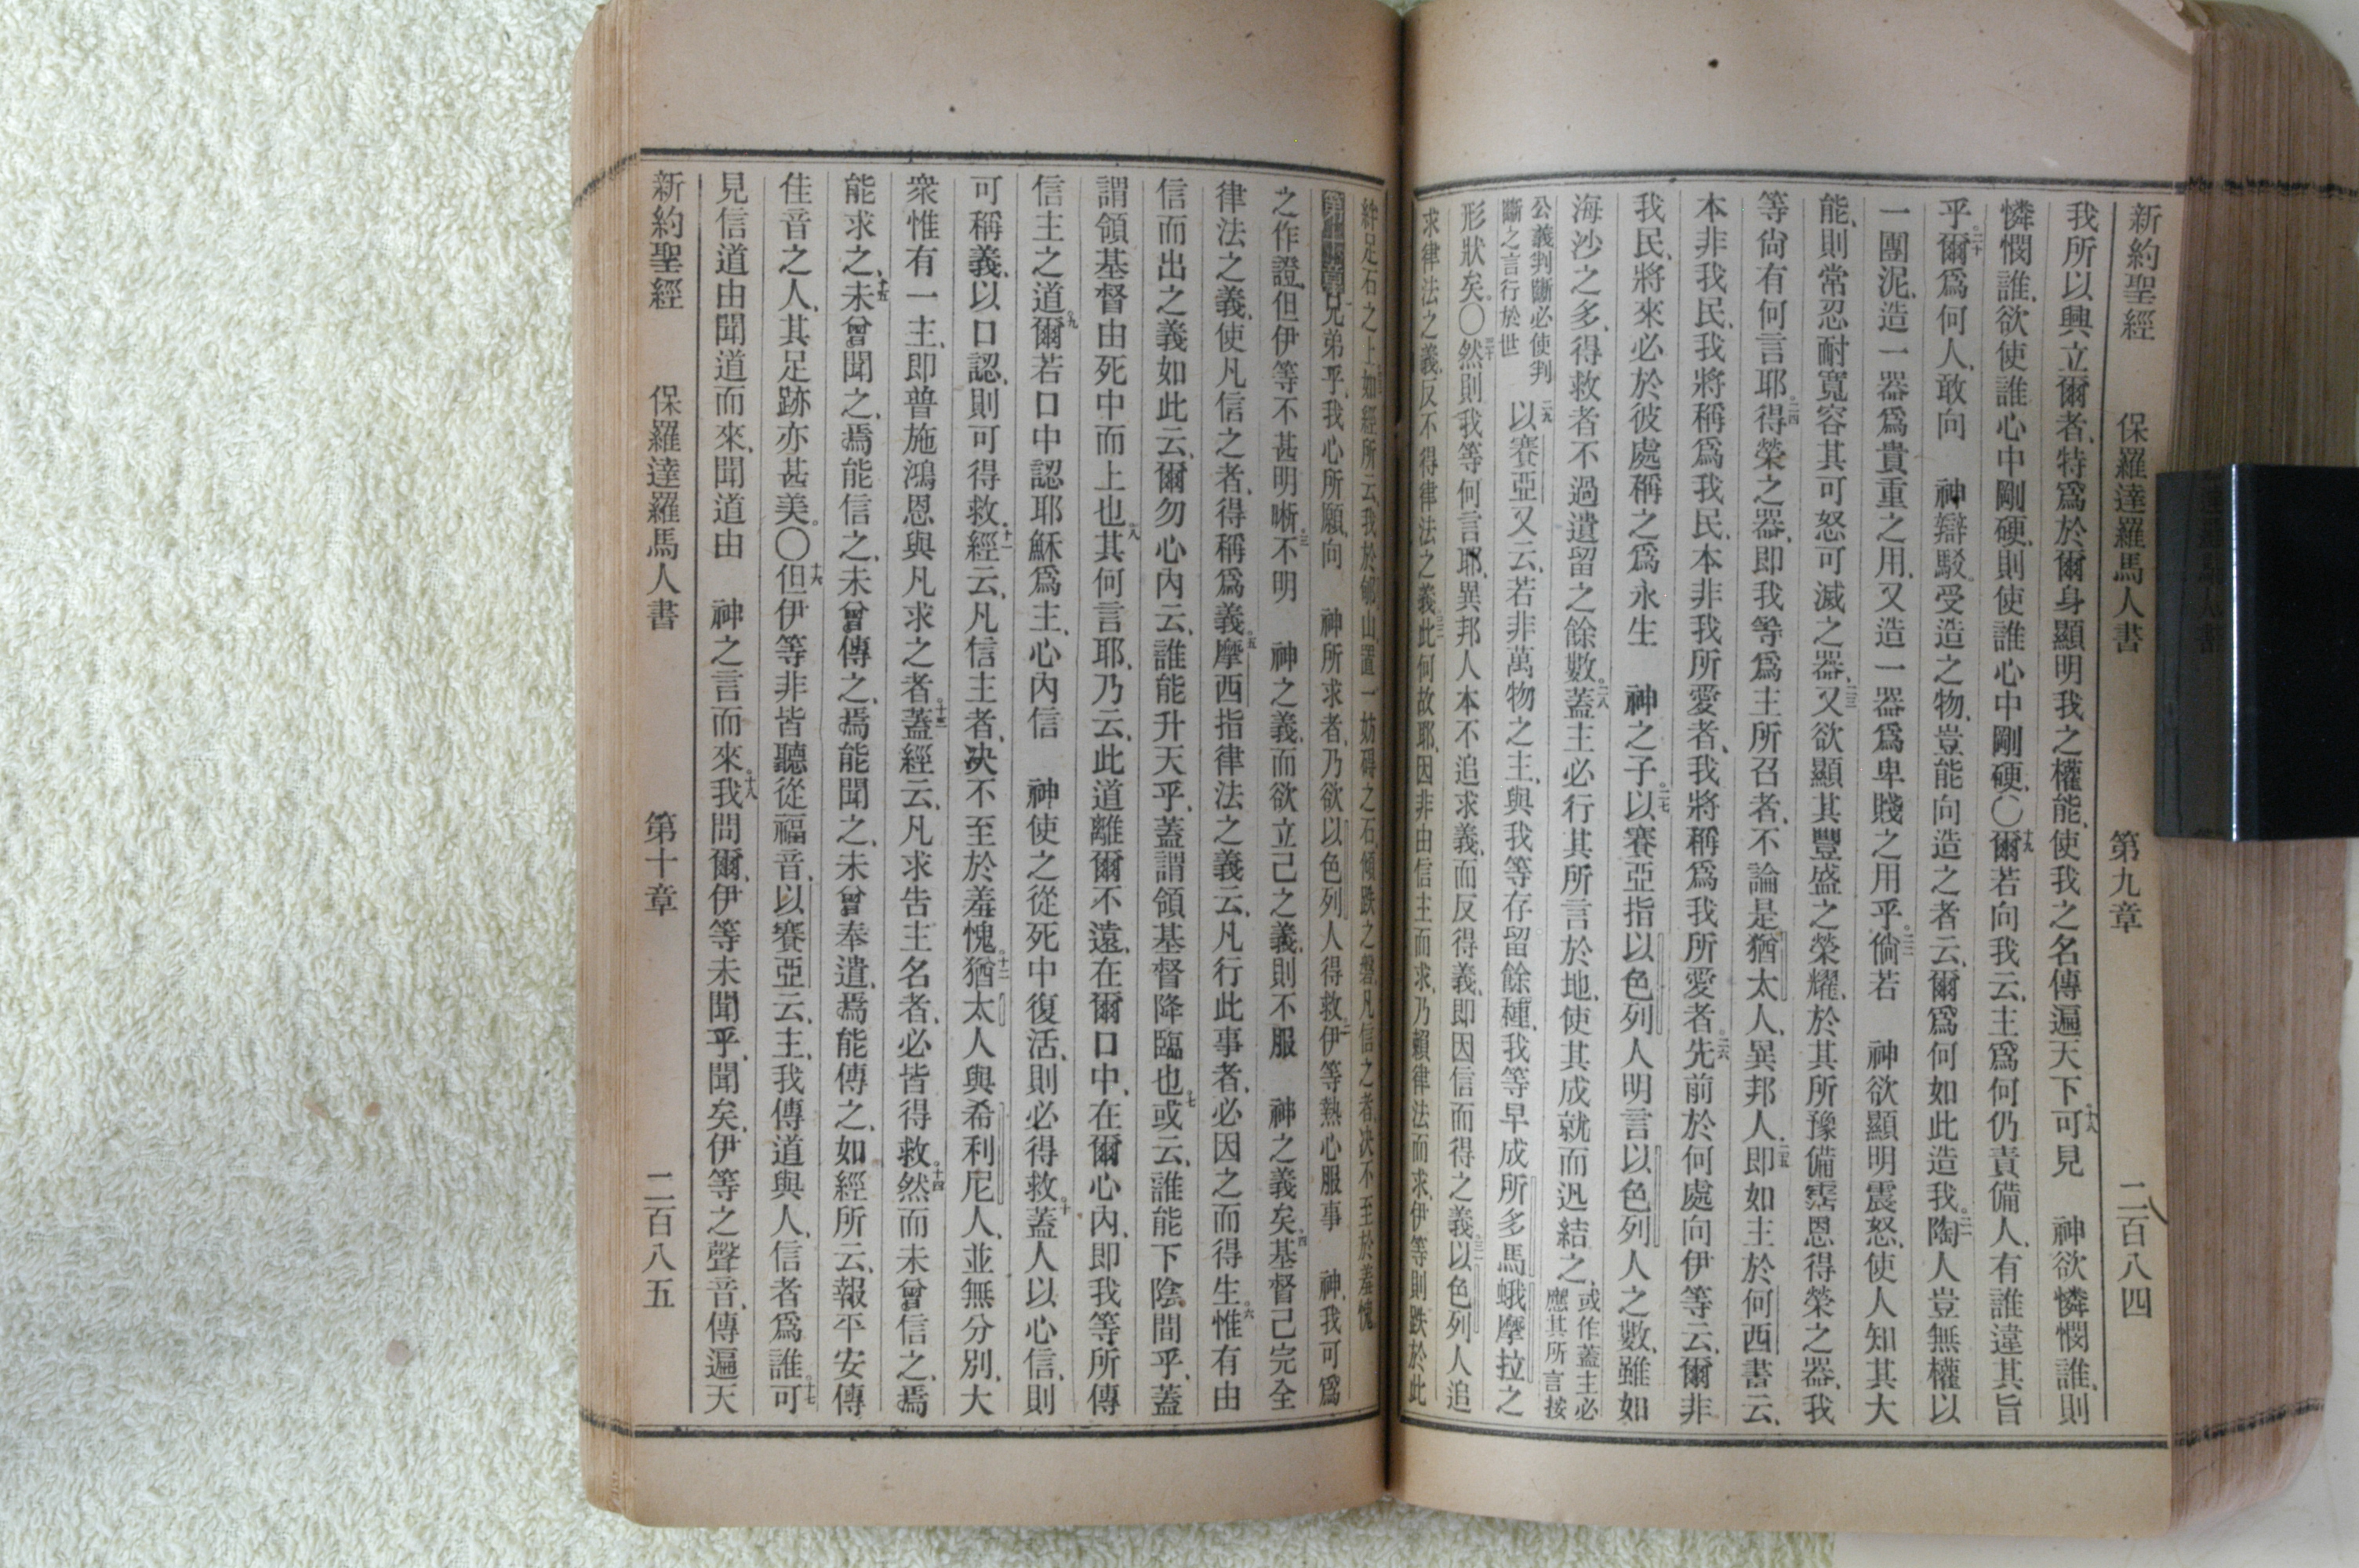 新約聖經 保羅達羅馬人書 第九章 二百八四
我所以興立爾者、特爲於爾身顯明我之權能、使我之名傳遍天下。十八可見 神欲憐憫誰、則
憐憫誰、欲使誰心中剛硬、則使誰心中剛硬、〇十九爾若向我云、主爲何仍責備人、有誰違其旨
乎。二十爾爲何人、敢向 神辯駁。受造之物、豈能向造之者云、爾爲何如此造我。二一陶人豈無權以
一團泥、造一器爲貴重之用、又造一器爲卑賤之用乎。二二倘若 神欲顯明震怒、使人知其大
能、則常忍耐寬容其可怒可滅之器、二三又欲顯其豐盛之榮耀、於其所豫備霑恩得榮之器、我
等尙有何言耶。二四得榮之器、即我等爲主所召者、不論是猶太人、異邦人、二五即如主於何西書云、
本非我民、我將稱爲我民、本非我所愛者、我將稱爲我所愛者。二六先前於何處向伊等云、爾非
我民、將來必於彼處稱之爲永生 神之子。二七以賽亞指以色列人明言以色列人之數、雖如
海沙之多、得救者不過遺留之餘數。二八蓋主必行其所言於地、使其成就而迅結之、或作蓋主必應其所言按
公義判斷必使判斷之言行於世 二九以賽亞又云、若非萬物之主、與我等存留餘種、我等早成所多馬蛾摩拉之
形狀矣。〇三十然則我等何言耶、異邦人本不追求義、而反得義、即因信而得之義、三一以色列人追
求律法之義、反不得律法之義、三二此何故耶、因非由信主而求、乃賴律法而求、伊等則跌於此
絆足石之上、三三如經所云、我於郇山、置一妨礙之石、傾跌之磐、凡信之者、決不至於羞愧、
第十章一兄弟乎、我心所願、向 神所求者、乃欲以色列人得救、二伊等熱心服事 神、我可爲
之作證、但伊等不甚明晰。三不明 神之義、而欲立己之義、則不服 神之義矣。四基督己完全
律法之義、使凡信之者、得稱爲義。五摩西指律法之義云、凡行此事者、必因之而得生。六惟有由
信而出之義如此云、爾勿心內云、誰能升天乎、蓋謂領基督降臨也。七或云、誰能下陰間乎、蓋
謂領基督由死中而上也。八其何言耶、乃云、此道離爾不遠、在爾口中、在爾心內、即我等所傳
信主之道。九爾若口中認耶穌爲主、心內信 神使之從死中復活、則必得救。十蓋人以心信、則
可稱義、以口認、則可得救。十一經云、凡信主者、決不至於羞愧。十二猶太人與希利尼人、並無分別、大
衆惟有一主、即普施鴻恩與凡求之者。十三蓋經云、凡求告主名者、必皆得救。十四然而未曾信之、焉
能求之、未曾聞之、焉能信之、未曾傳之、焉能聞之、十五未曾奉遣、焉能傳之、如經所云、報平安傳
佳音之人、其足跡亦甚美。〇十六但伊等非皆聽從福音、以賽亞云、主、我傳道與人、信者爲誰。十七可
見信道由聞道而來、聞道由 神之言而來。十八我問爾、伊等未聞乎、聞矣、伊等之聲音、傳遍天
新約聖經 保羅達羅馬人書 第十章 二百八五